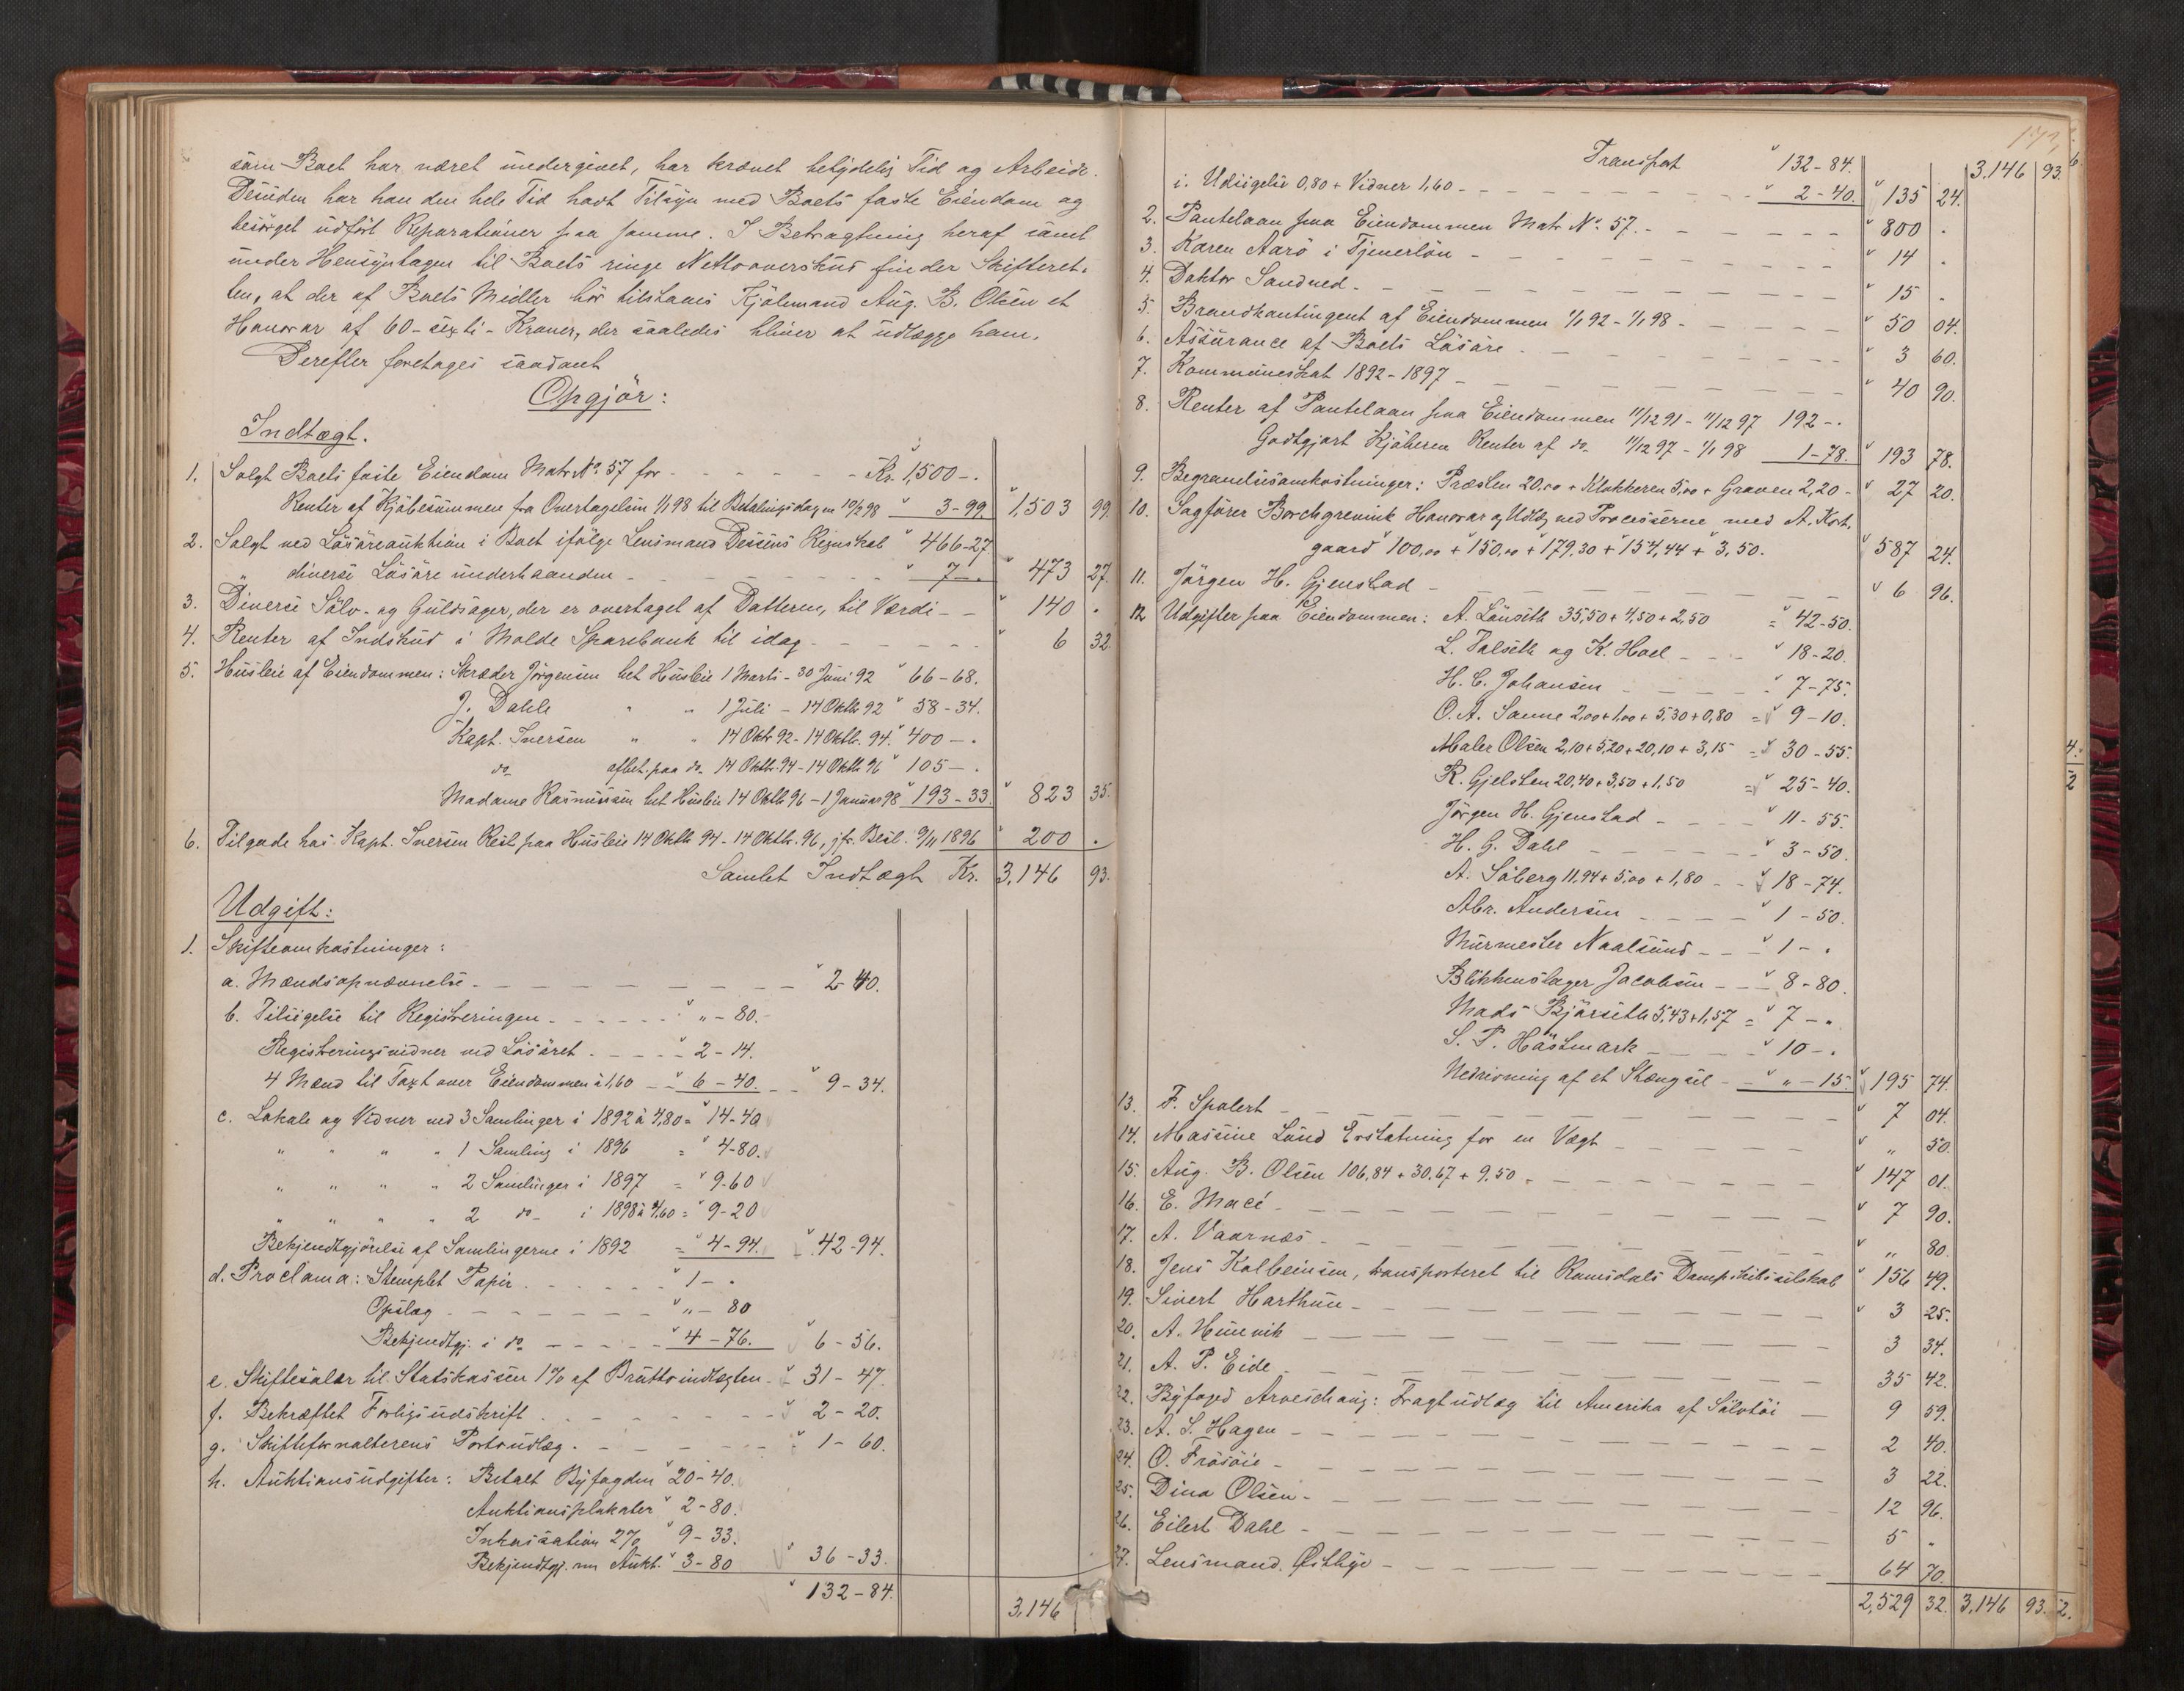 som Boet har været undergivet, har krævet betydelig Tid og Arbeide.
Desuden har han den hele Tid havt Tilsyn med Boets faste Eiendom og
besørget udført Reparationer paa samme. I Betragtning heraf samt
under Hensyntagen til Boets ringe Nettooverskud finder Skifteret-
ten, at der af Boets Midler bør tilstaaes Kjøbmand Aug. B. Olsen et
Honorar af 60 - sexti - Kroner, der saaledes bliver at udlægge ham.
Derefter foretages saadant
Opgjør:
Indtægt.
1. Solgt Boets faste Eiendom Matr No. 57 for - - - Kr. 1,500 - .
Renter af Kjøbesummen fra Overtagelsen 1/1 98 til Betalingsdagen 10/2 98 " 3-99. " 1,503 99.
2. Solgt ved Løsøreauktion i Boet ifølge Lensmand Dessens Regnskab " 466-27
" diverse Løsøre underhaanden - - - " 7 - . " 473 27.
3. Diverse Sølv- og Guldsager, der er overtaget af Datteren, til Værdi - - " 140 .
4. Renter af Indskud i Molde Sparebank til idag - - - " 6 32.
5. Husleie af Eiendommen: Skræder Jørgensen bet Husleie 1 Marts - 30 Juni 92 " 66-68.
J. Dahle " " 1 Juli - 14 Oktb 92 " 58-34.
Kapt. Iversen " " 14 Oktbr 92 - 14 Oktbr. 94. " 400 - .
do afbet. paa do 14 Oktbr. 94 - 14 Oktb 96 " 105 - .
Madame Rasmussen bet Husleie 14 Oktb 96 - 1 Januar 98 " 193-33. " 823 35.
6. Tilgode hos Kapt. Iversen Rest paa Husleie 14 Oktb 94 - 14 Oktbr. 96, jfr. Besl. 9/11 1896 " 200 .
Samlet Indtægt Kr. 3,146 93.
Udgift:
1. Skifteomkostninger:
a. Mændsopnævnelse - - - " 2-40.
b. Tilsigelse til Registreringen - - - " " - 80.
Registreringsvidner ved Løsøret - - - " 2-14.
4 Mænd til Taxt over Eiendommen à 1,60 - - " 6-40. - - " 9-34.
c. Lokale og Vidner ved 3 Samlinger i 1892 à 4,80 = " 14-40
" " " " 1 Samling i 1896 = " 4-80.
" " " " 2 Samlinger i 1897 = " 9-60
" " " " 2 do i 1898 à 4,60 = " 9-20
Bekjendtgjørelse af Samlingerne i 1892 = " 4-94. " 42-94.
d. Proclama: Stemplet Papir - - - " 1 - .
Opslag - - - " " - 80
Bekjendtgj. i do - - - " 4-76. " 6-56.
e. Skiftesalær til Statskassen 1% af Bruttoindtægten - " 31-47.
f. Bekræftet Forligsudskrift - - - " 2-20.
g. Skifteforvalterens Portoudlæg - - - " 1-60.
h. Auktionsudgifter: Betalt Byfogden " 20-40.
Auktionsplakater " 2-80.
Inkassation 2% " 9-33.
Bekjendtgj. om Aukt. " 3-80 " 36-33.
" 132-84.
3,146
Transport " 132-84. 3,146 93.
i. Udsigelse 0,80 + Vidner 1,60 - - - " 2-40. " 135 24.
2. Pantelaan paa Eiendommen Matr No. 57. - - - " 800 .
3. Karen Aarø i Tjenerløn - - - " 14 .
4. Doktor Sandved - - - " 15 .
5. Brandkontingent af Eiendommen 1/1 92 - 1/1 98 - - - " 50 04.
6. Assurance af Boets Løsøre - - - " 3 60.
7. Kommuneskat 1892-1897 - - - " 40 90.
8. Renter af Pantelaan paa Eiendommen 11/12 91 - 11/12 97 192 - .
Godtgjort Kjøberen Renter af do 11/12 97 - 1/1 98 1-78. " 193 78.
9. Begravelsesomkostninger: Præsten 20,00 + Klokkeren 5,00 + Graven 2,20 - " 27 20.
10. Sagfører Borchgrevink Honorar og Udlæg ved Processerne med A. Kort-
gaard " 100,00 + " 150,00 + " 179.30 + " 154,44 + " 3.50. " 587 24.
11. Jørgen H. Gjenstad - - - " 6 96.
12 Udgifter paa Eiendommen: A. Lønseth 35,50 + 4,50 + 2,50 = " 42-50.
L. Dalseth og K. Hoel - - - " 18-20.
H. C. Johansen - - - " 7-75.
O. A. Sanne 2,00 + 1,00 + 5,30 + 0,80 = " 9-10.
Maler Olsen 2,10 + 5,20 + 20,10 + 3,15 = " 30-55.
R. Gjelsten 20,40 + 3,50 + 1,50 = " 25-40.
Jørgen H. Gjenstad - - - " 11-55.
H. G. Dahl - - - " 3-50.
A. Søberg 11,94 + 5,00 + 1,80 - - " 18-74.
Abr. Andersen - - - " 1-50.
Murmester Naalsund - - - " 1 - .
Blikkenslager Jacobsen - - - " 8-80.
Mads Bjørseth 5,43 + 1,57 = " 7 - "
S. P. Hästmark - - - " 10 - .
Nedrivning af et - - " " - 15. " 195 74.
13. F. Spolert - - - " 7 04.
14. Massine Lund Erstatning for en Vægt - - - " " 50.
15. Aug. B. Olsen 106,84 + 30,67 + 9,50 - - - " 147 01.
16. E. Macé - - - " 7 90.
17. A. Vaarnæs - - - " " 80.
18. Jens Kolbeinsen, transporteret til Romsdals Dampskibsselskab " 156 49.
19. Sivert Harthun - - - " 3 25.
20. A. Hunnvik - - - 3 34.
21. A. P. Eide - - - 35 42.
22. Byfoged Arveschoug: Fragtudlæg til Amerika af Sølvtøi - 9 59.
23. A. S. Hagen - - - 2 40.
24. O. Frøsøie - - - 3 22.
25. Dina Olsen - - - 12 96.
26. Eilert Dahl - - - 5 "
27. Lensmand Østbye - - - 64 70.
2,529 32. 3,146 93.